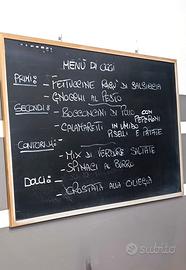 MENÙ DI OGGI
PRIMI:
- FETTUCCINE RAGÙ DI SALSICCIA
- GNOCCHI AL PESTO
SECONDI:
- BOCCONCINI DI POLLO CON PEPERONI
- CALAMARETTI IN UMIDO PISELLI E PATATE
CONTORNI:
- MIX DI VERDURE SALTATE
- SPINACI AL BURRO
DOLCI:
- CROSTATA ALLA CILIEGIA
subito